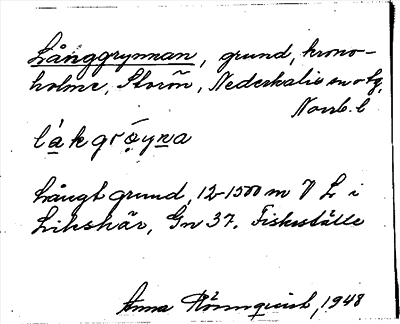 Långgrynnan, grund, krono-
holme, Storön, Nederkalix sn o tg,
Norrb. l
lák grö̀yna
Långt grund, 12-1500 m V L i
Likskär, Gn 37. Fiskeställe
Anna Rönnqvist, 1948